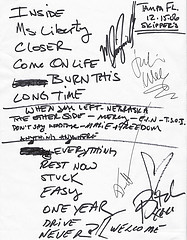 INSIDE
Ms Liberty
CLOSER
COME ON LIFE
BURN THIS
LONG TIME
TAMPA FL.
12.15.00
SKIPPERS
WHEN YOU LEFT - NEBRASKA
THE OTHER SIDE - MERCY - F.I.N - T.S.O.J.
DON'T SAY - FREEDOM
ANYTHING ANYWHERE
EVERYTHING
REST NOW
STUCK
EASY
ONE YEAR
DRIVE
NEVER
WELCOME